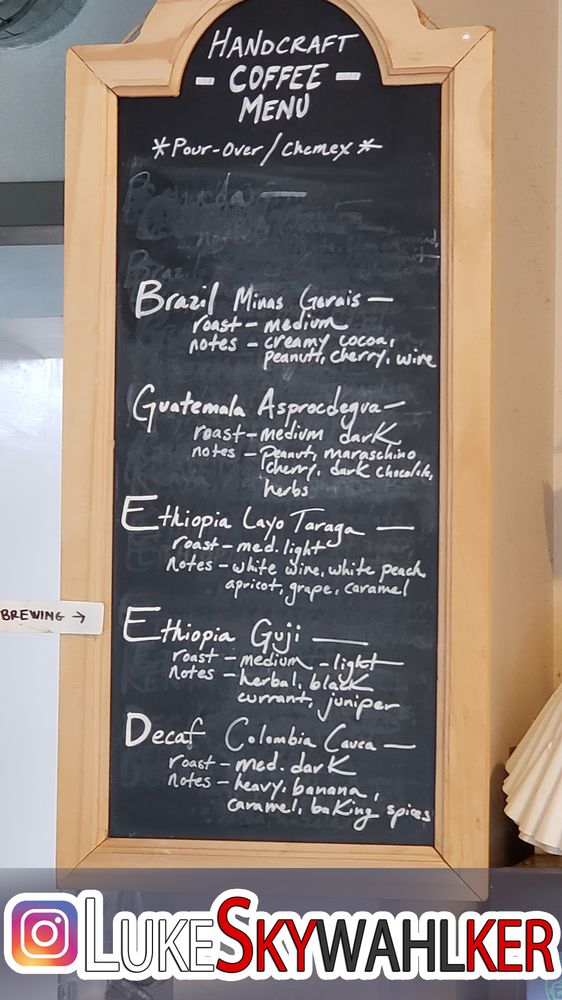 HANDCRAFT
- COFFEE -
MENU
*Pour-Over/Chemex*
Brazil Minas Gerais —
roast - medium
notes - creamy cocoa,
peanut, cherry, wine
Guatemala Asprocdegua —
roast - medium dark
notes - Peanut, maraschino
cherry, dark chocolate,
herbs
Ethiopia Layo Taraga —
roast - med. light
notes - white wine, white peach,
apricot, grape, caramel
BREWING →
Ethiopia Guji —
roast - medium - light
notes - herbal, black
currant, juniper
Decaf Colombia Cauca —
roast - med. dark
notes - heavy, banana,
caramel, baking spices
LUKESKYWAHLKER